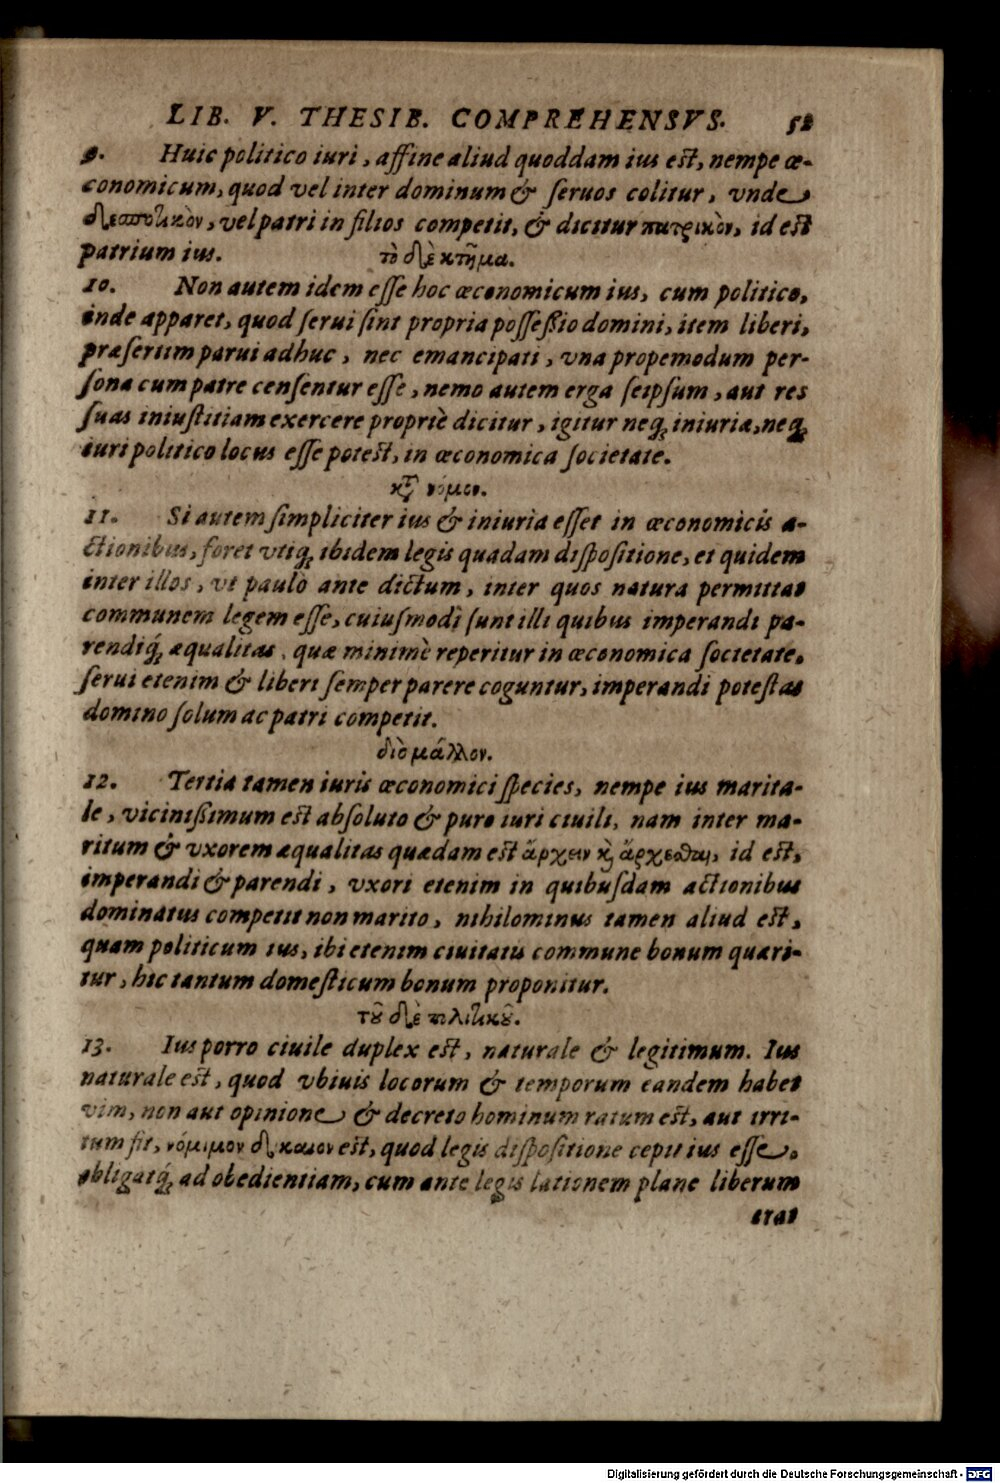 LIB. V. THESIB. COMPREHENSVS. 52
9. Huic politico iuri, affine aliud quoddam ius est, nempe œ-
conomicum, quod vel inter dominum & seruos colitur, vnde
δεσποτικὸν, vel patri in filios competit, & dicitur πατρικὸν, id est
patrium ius.
τὸ δὲ κτῆμα.
10. Non autem idem esse hoc œconomicum ius, cum politico,
inde apparet, quod serui sint propria possessio domini, item liberi,
præsertim parui adhuc, nec emancipati, vna propemodum per-
sona cum patre censentur esse, nemo autem erga seipsum, aut res
suas iniustitiam exercere propriè dicitur, igitur neq; iniuriæ, neq;
iuri politico locus esse potest, in œconomica societate.
κτ νόμον.
11. Si autem simpliciter ius & iniuria esset in œconomicis a-
ctionibus, foret vtiq; ibidem legis quædam dispositione, et quidem
inter illos, vt paulò ante dictum, inter quos natura permittat
communem legem esse, cuiusmodi sunt illi quibus imperandi pa-
rendiq́; æqualitas, quæ minimè reperitur in œconomica societate,
serui etenim & liberi semper parere coguntur, imperandi potestas
domino solum ac patri competit.
διὸ μᾶλλον.
12. Tertia tamen iuris œconomici species, nempe ius marita-
le, vicinissimum est absoluto & puro iuri ciuili, nam inter ma-
ritum & vxorem æqualitas quædam est ἄρχειν κ̀ ἄρχεσθαι, id est,
imperandi & parendi, vxori etenim in quibusdam actionibus
dominatus competit non marito, nihilominus tamen aliud est,
quam politicum ius, ibi etenim ciuitatis commune bonum quæri-
tur, hic tantum domesticum bonum proponitur.
τοῦ δὲ πολιτικοῦ.
13. Ius porro ciuile duplex est, naturale & legitimum. Ius
naturale est, quod vbiuis locorum & temporum eandem habet
vim, non aut opinione & decreto hominum ratum est, aut irri-
tum fit, νόμιμον δίκαιον est, quod legis dispositione cepit ius esse,
obligatq́; ad obedientiam, cum ante legis lationem plane liberum
erat
Digitalisierung gefördert durch die Deutsche Forschungsgemeinschaft - DFG